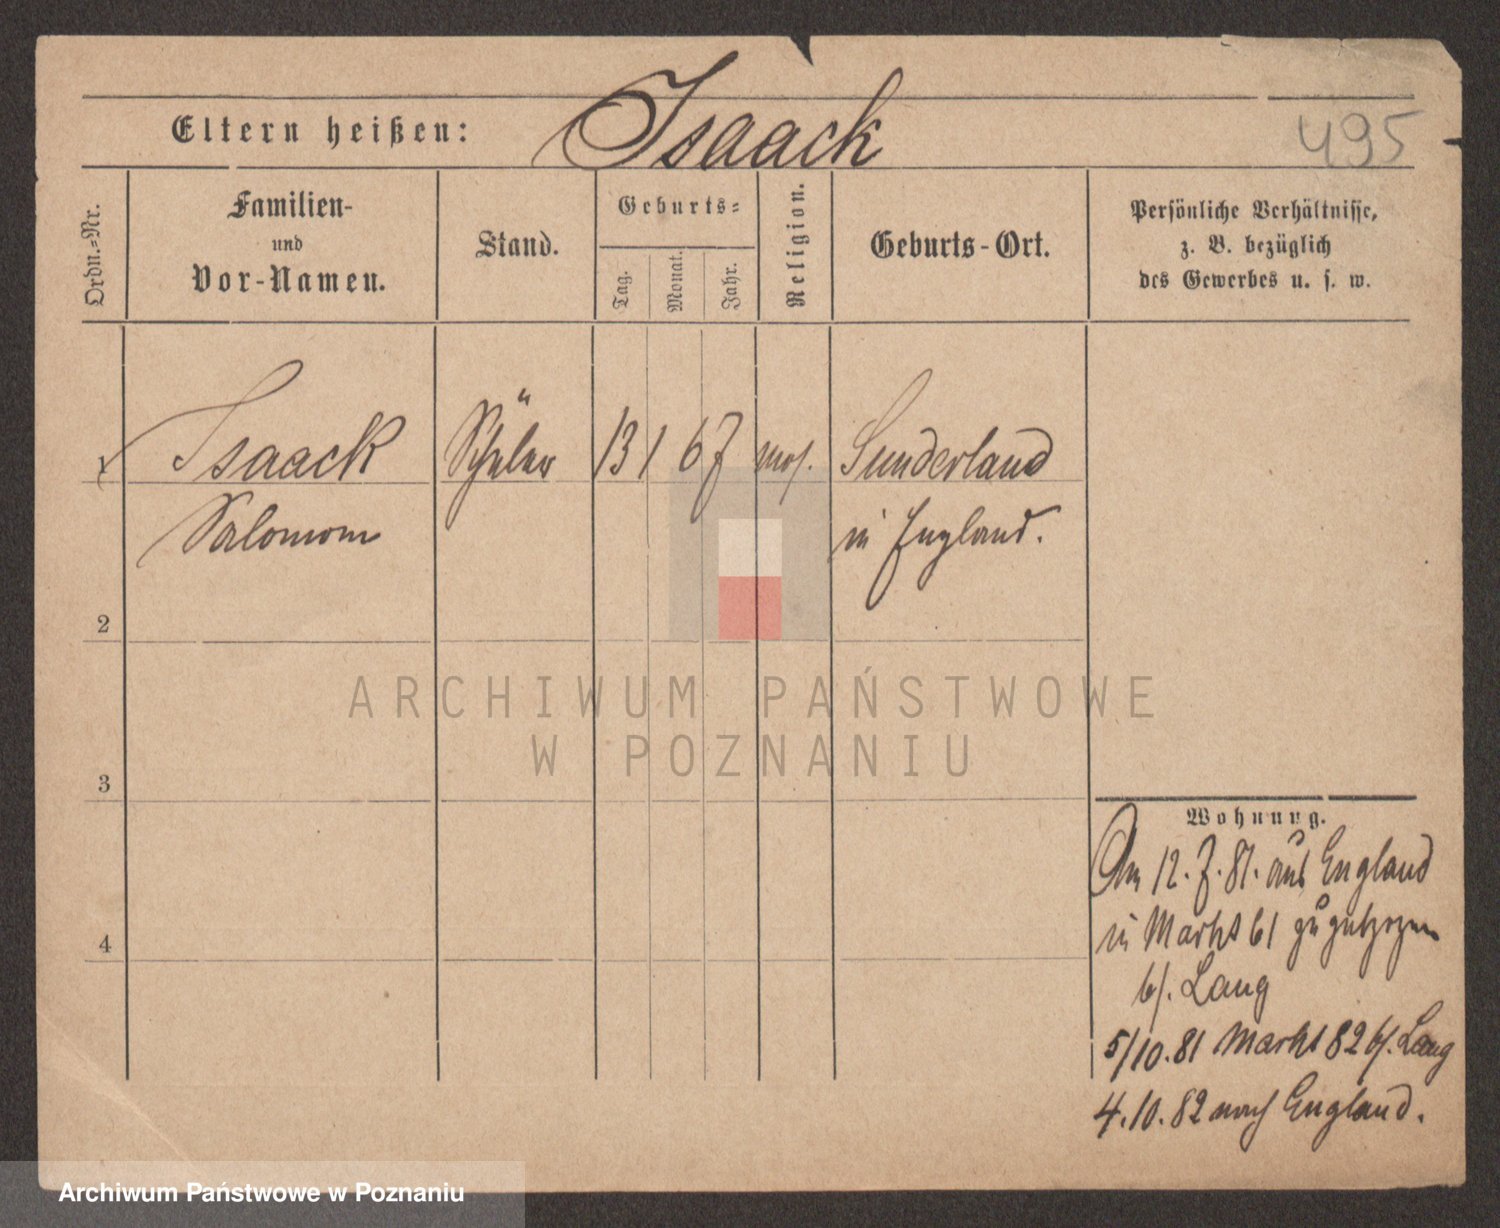 Eltern heißen: Isaack
495
Ordn.=Nr.
Familien-
und
Vor-Namen.
Stand.
Geburts=
Tag.
Monat.
Jahr.
Religion.
Geburts-Ort.
Persönliche Verhältnisse,
z. B. bezüglich
des Gewerbes u. s. w.
1 Isaack Schüler 13 1 67 mos. Sunderland
Salomon in England.
2
3
4
ARCHIWUM PAŃSTWOWE
W POZNANIU
Wohnung.
Am 12.7.81. aus England
in Markt 61 zugezogen
b/. Lang
5/10.81 Markt 82 b/. Lang
4.10.82 nach England.
Archiwum Państwowe w Poznaniu